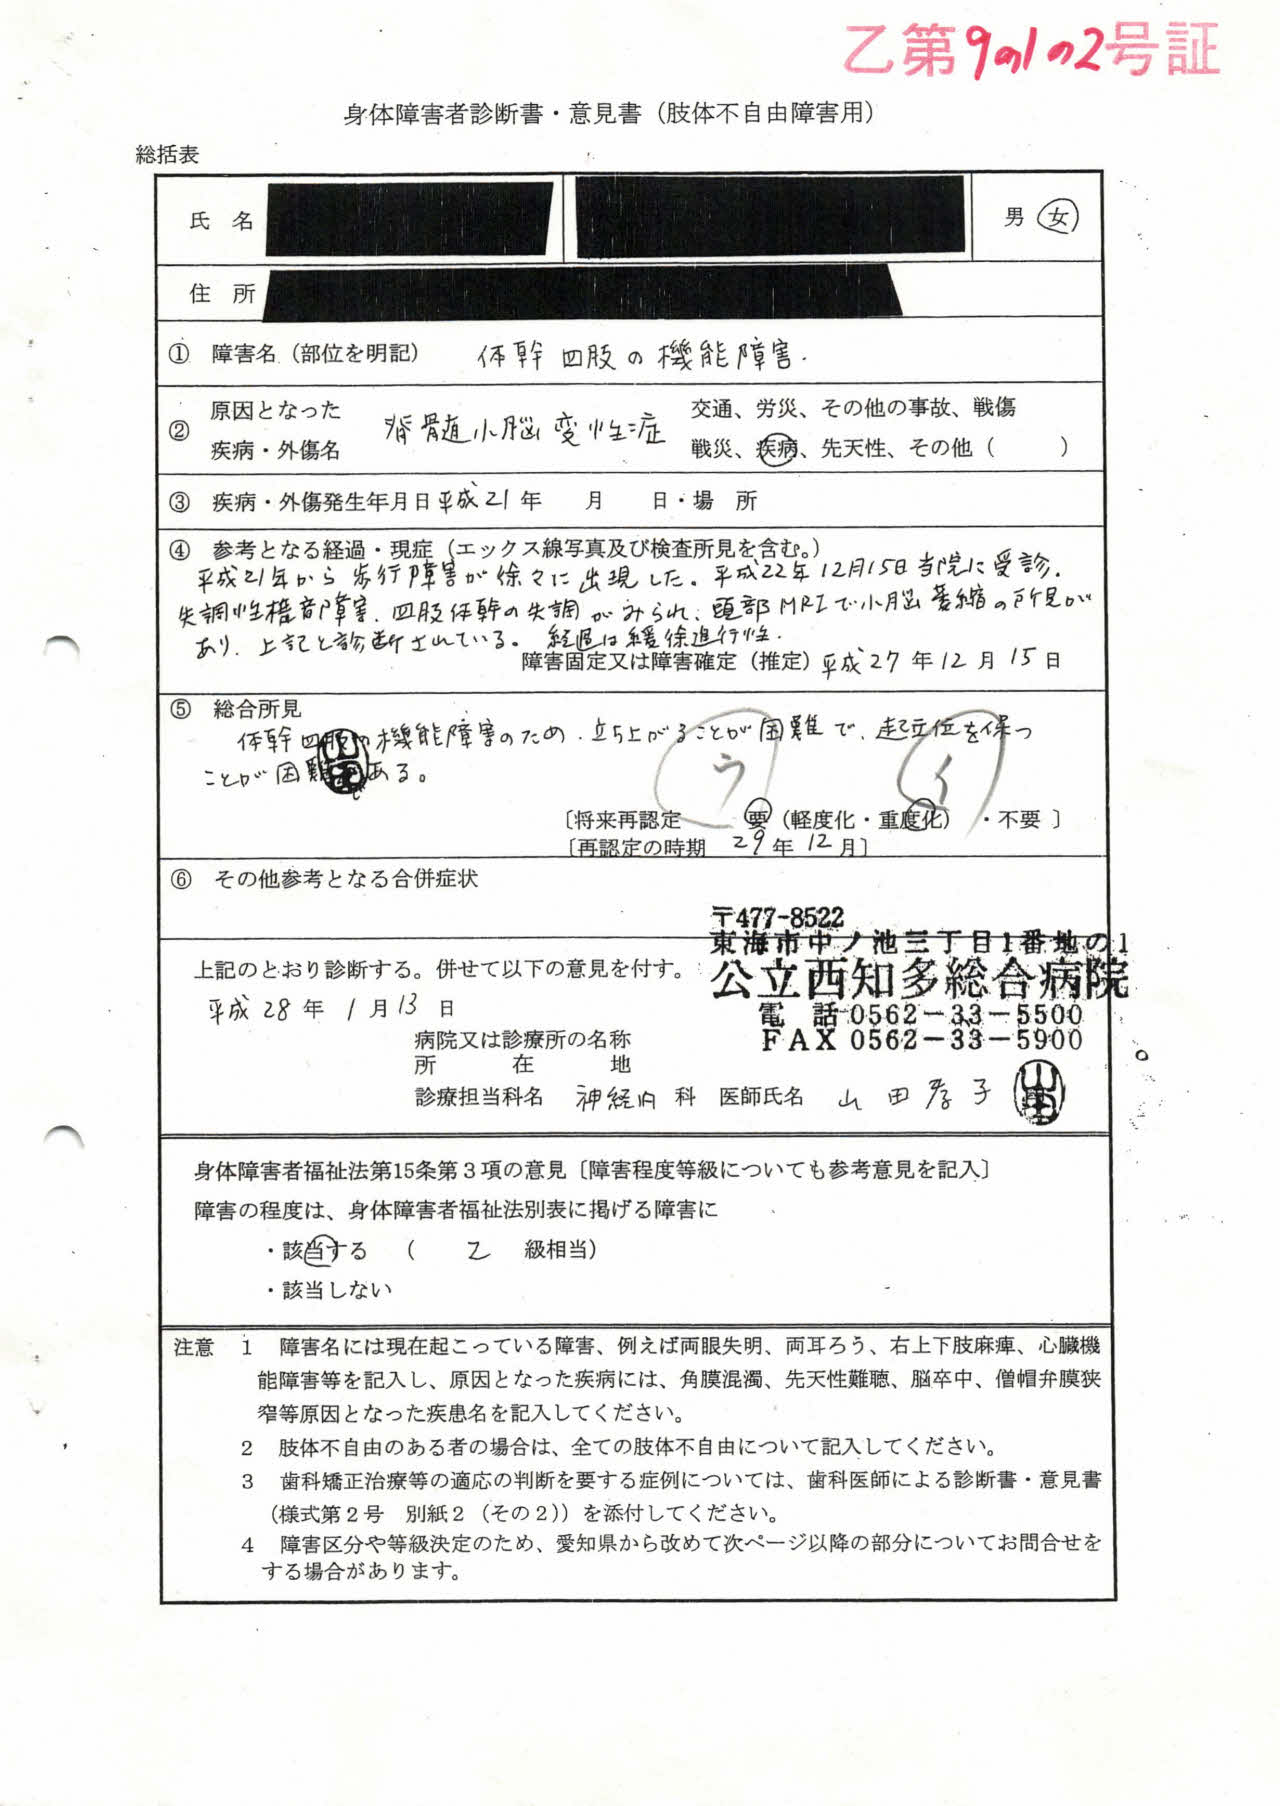 乙第9の1の2号証
身体障害者診断書・意見書（肢体不自由障害用）
総括表
氏 名
男 女
住 所
① 障害名（部位を明記） 体幹四肢の機能障害.
② 原因となった 疾病・外傷名 脊髄小脳変性症
交通、労災、その他の事故、戦傷
戦災、疾病、先天性、その他（ ）
③ 疾病・外傷発生年月日 平成21年 月 日・場 所
④ 参考となる経過・現症（エックス線写真及び検査所見を含む。）
平成21年から歩行障害が徐々に出現した。平成22年12月15日当院に受診.
失調性構音障害、四肢体幹の失調がみられ、頭部MRIで小脳萎縮の所見が
あり、上記と診断されている。経過は緩徐進行性.
障害固定又は障害確定（推定）平成27年12月15日
⑤ 総合所見
体幹四肢の機能障害のため、立ち上がることが困難で、起立位を保つ
ことが困難である。
ウ イ
〔将来再認定 要（軽度化・重度化）・不要 〕
〔再認定の時期 29年12月〕
⑥ その他参考となる合併症状
〒477-8522
東海市中ノ池三丁目1番地の1
上記のとおり診断する。併せて以下の意見を付す。
公立西知多総合病院
平成28年1月13日
電 話 0562－33－5500
FAX 0562－33－5900
病院又は診療所の名称
所 在 地
診療担当科名 神経内科 医師氏名 山田孝子
身体障害者福祉法第15条第３項の意見〔障害程度等級についても参考意見を記入〕
障害の程度は、身体障害者福祉法別表に掲げる障害に
・該当する （ 2 級相当）
・該当しない
注意 １ 障害名には現在起こっている障害、例えば両眼失明、両耳ろう、右上下肢麻痺、心臓機
能障害等を記入し、原因となった疾病には、角膜混濁、先天性難聴、脳卒中、僧帽弁膜狭
窄等原因となった疾患名を記入してください。
２ 肢体不自由のある者の場合は、全ての肢体不自由について記入してください。
３ 歯科矯正治療等の適応の判断を要する症例については、歯科医師による診断書・意見書
（様式第２号 別紙２（その２））を添付してください。
４ 障害区分や等級決定のため、愛知県から改めて次ページ以降の部分についてお問合せを
する場合があります。